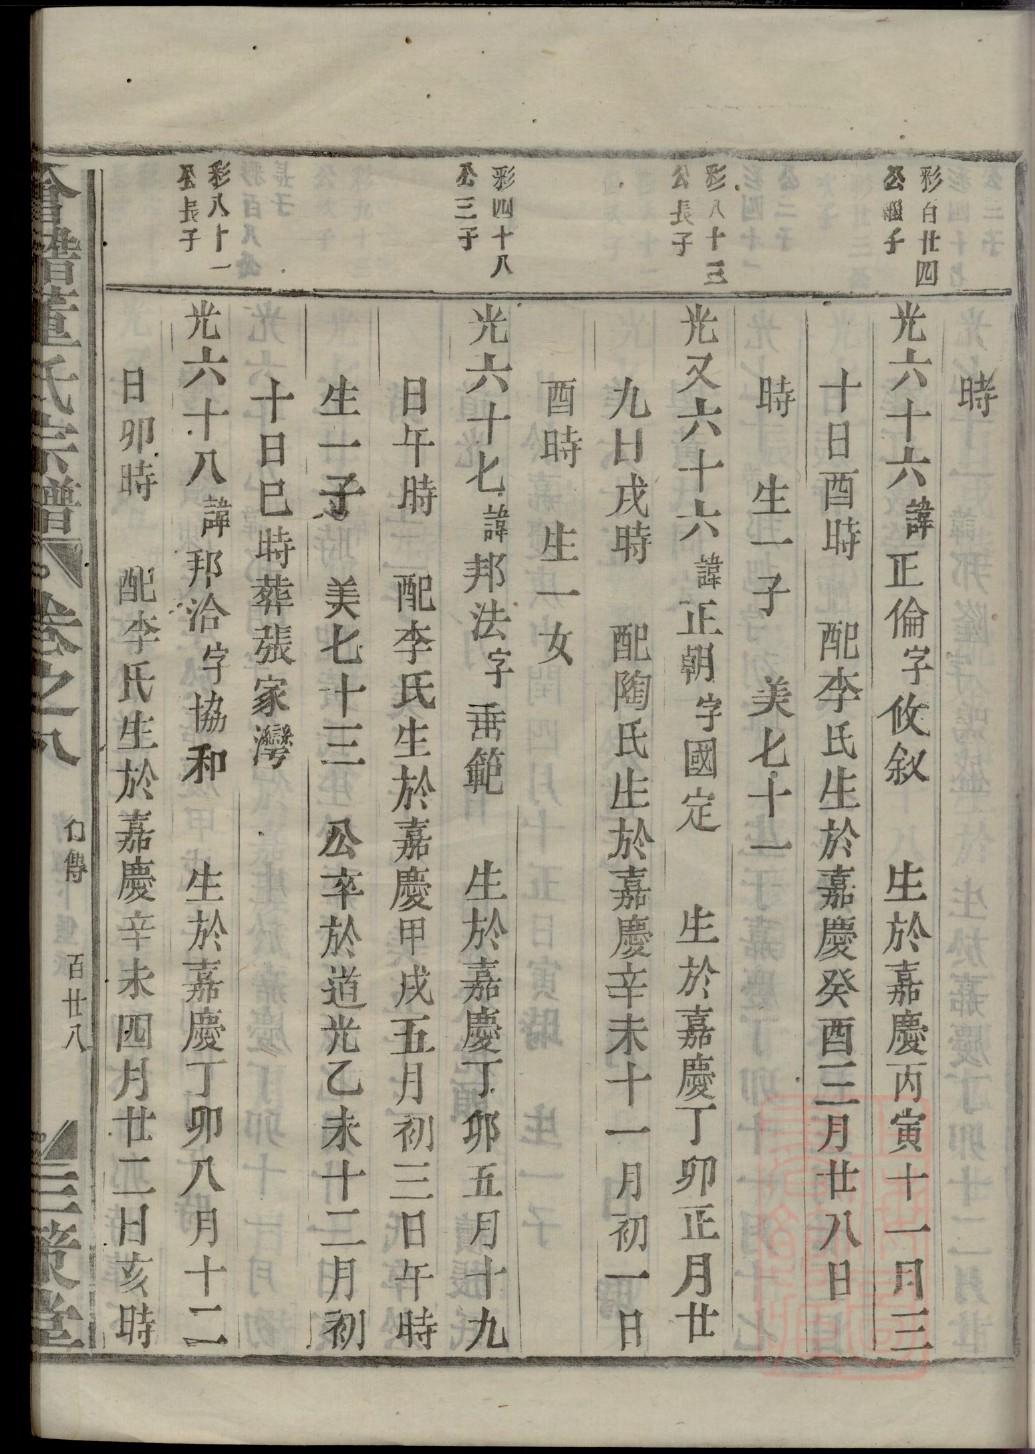 時
彩百廿四
公繼子
光六十六諱正倫字攸叙 生於嘉慶丙寅十一月三
十日酉時 配李氏生於嘉慶癸酉三月廿八日
時 生一子 美七十一
彩八十三
公長子
光又六十六諱正朝字國定 生於嘉慶丁卯正月廿
九日戌時 配陶氏生於嘉慶辛未十一月初一日
酉時 生一女
彩四十八
公三子
光六十七諱邦法字垂範 生於嘉慶丁卯五月十九
日午時 配李氏生於嘉慶甲戌五月初三日午時
生一子 美七十三 公卒於道光乙未十二月初
十日巳時葬張家灣
彩八十一
公長子
光六十八諱邦洽字協和 生於嘉慶丁卯八月十二
日卯時 配李氏生於嘉慶辛未四月廿二日亥時
董氏宗譜 卷之八 百廿八 三策堂